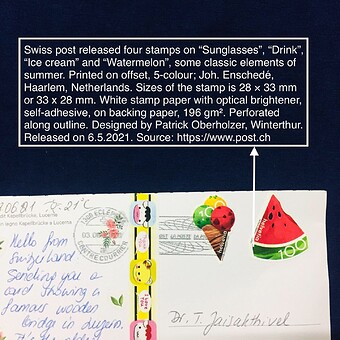 Swiss post released four stamps on “Sunglasses”, “Drink”,
“Ice cream” and “Watermelon”, some classic elements of
summer. Printed on offset, 5-colour; Joh. Enschedé,
Haarlem, Netherlands. Sizes of the stamp is 28 × 33 mm
or 33 x 28 mm. White stamp paper with optical brightener,
self-adhesive, on backing paper, 196 gm². Perforated
along outline. Designed by Patrick Oberholzer, Winterthur.
Released on 6.5.2021. Source: https://www.post.ch
21°C
Kapellbrücke, Lucerne
Kapellbrücke a Lucerne
CENTRE COURRIER
100
Helvetia
100
Hello from
Switzerland
Sending you a
card showing a
famous wooden
bridge in Luzern.
It's the oldest
Dr. T. Jaisakthivel